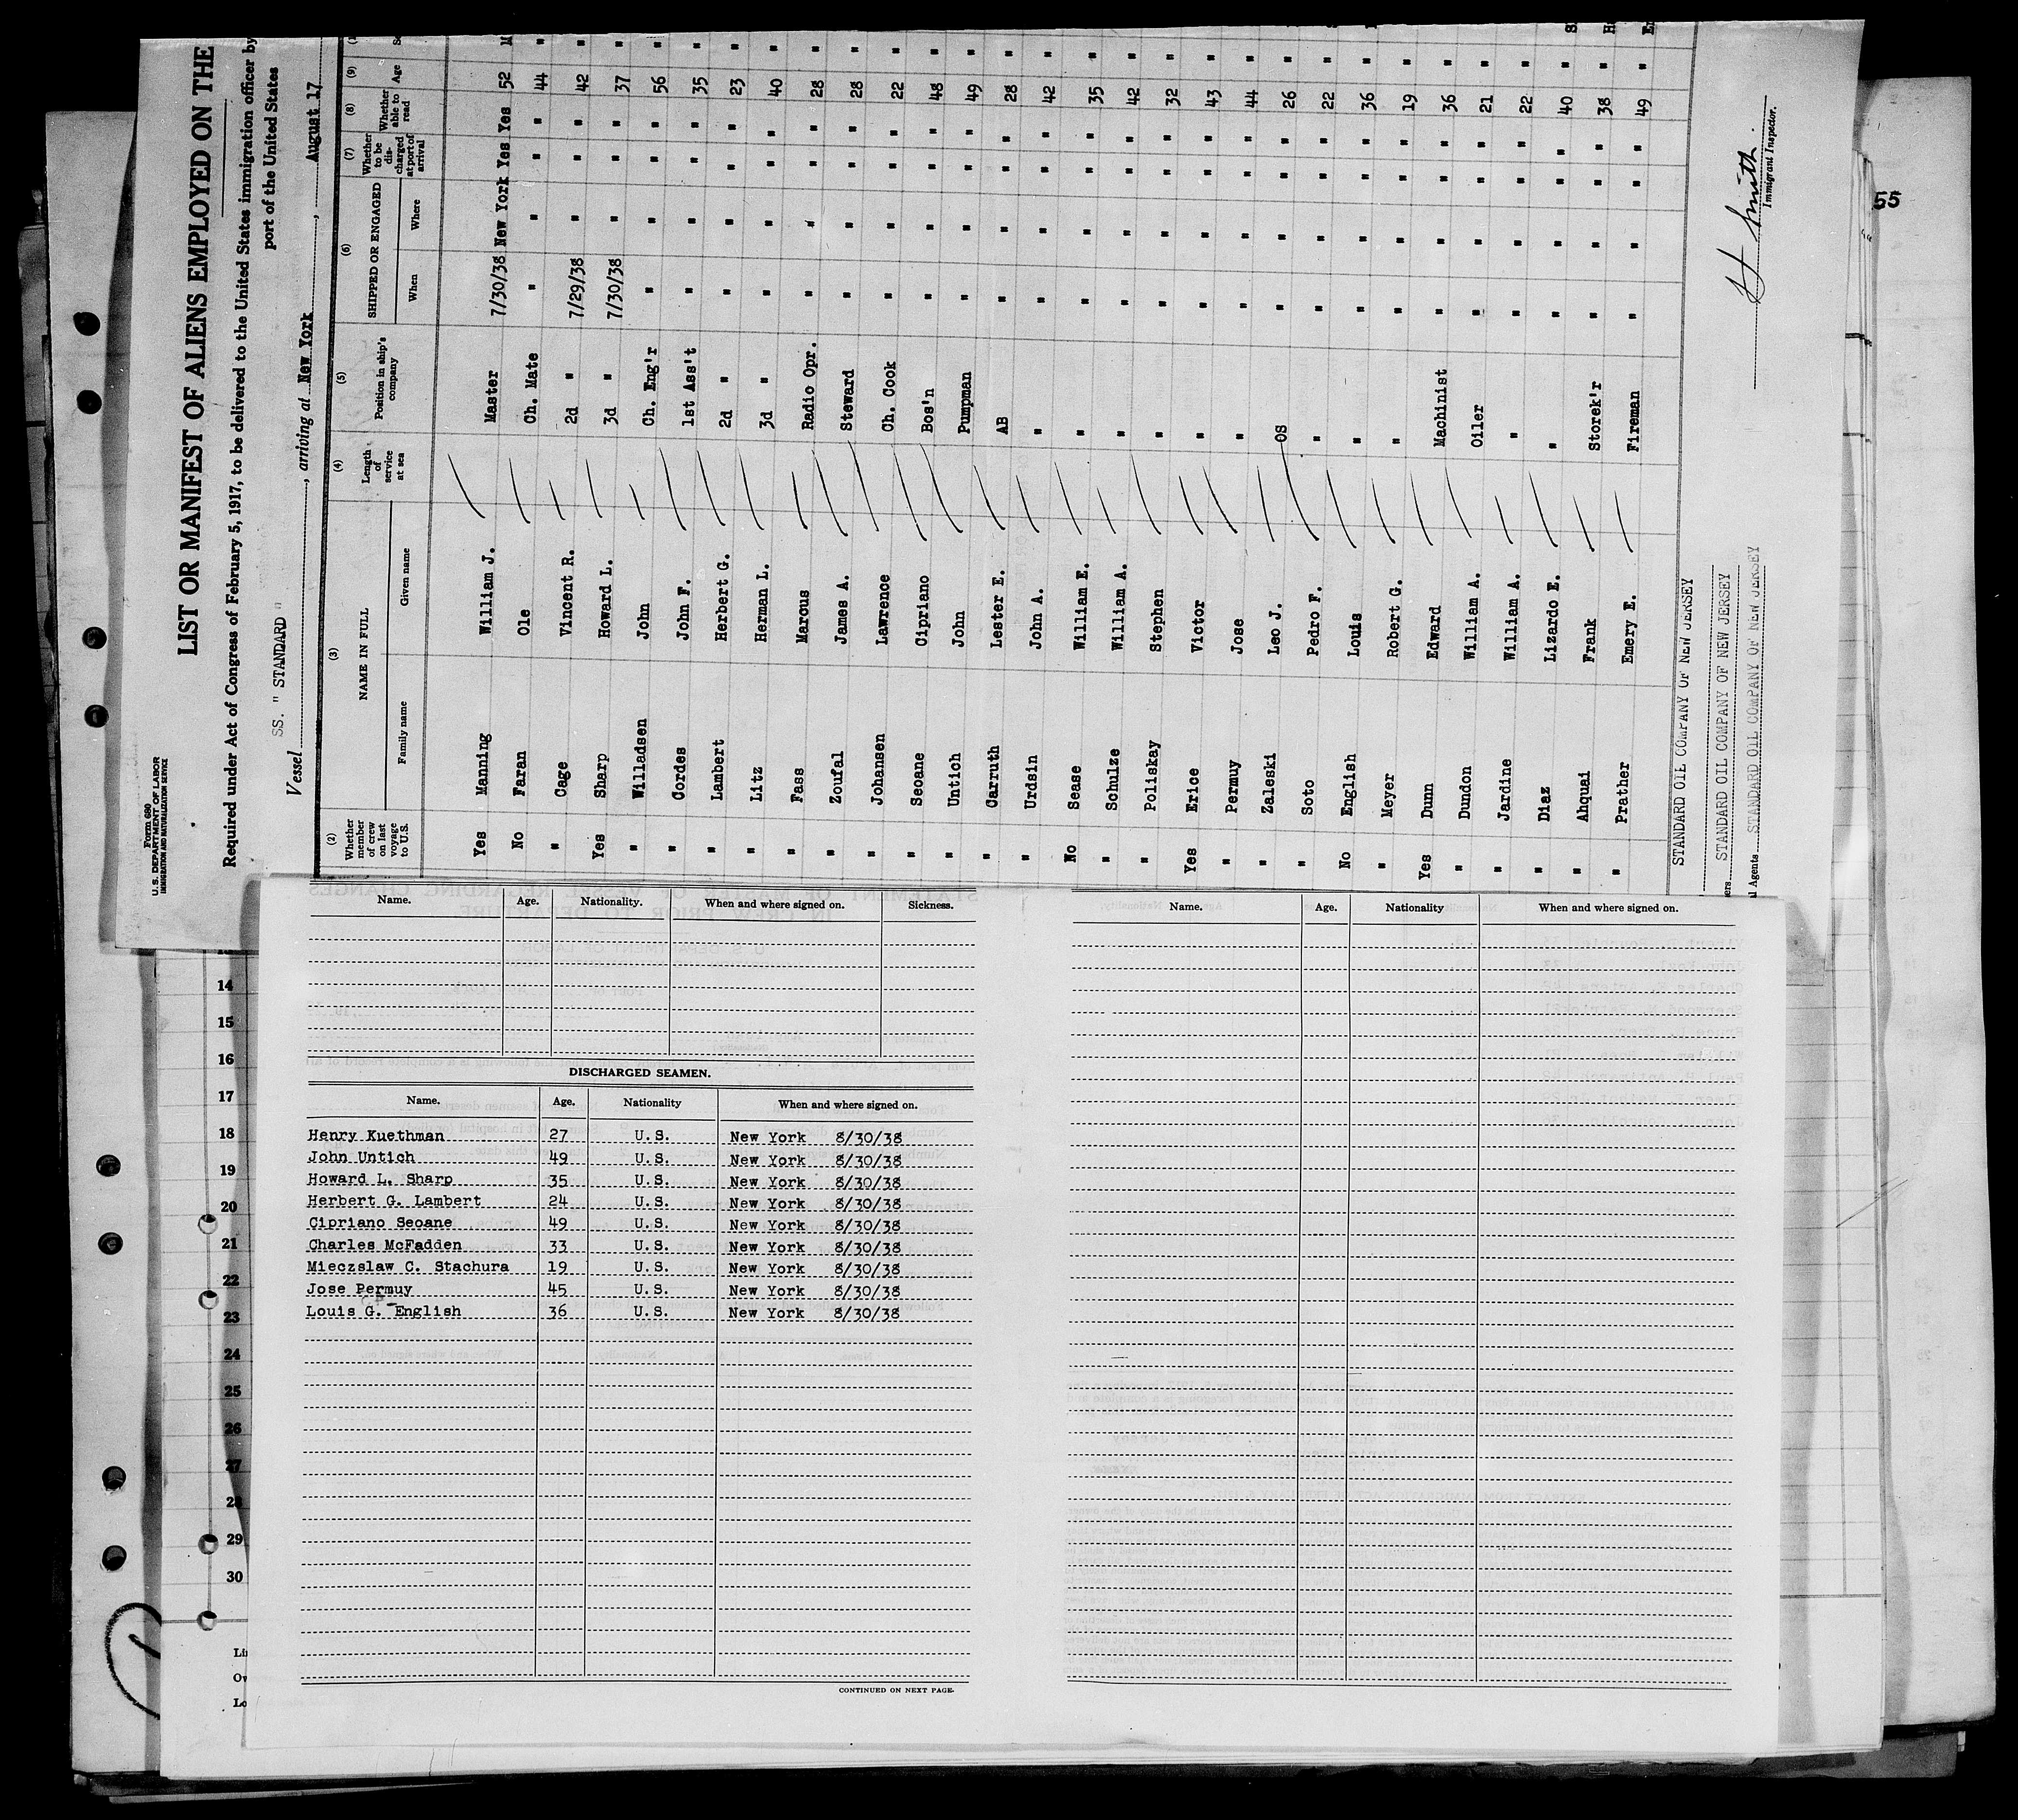 Form 680
U. S. DEPARTMENT OF LABOR
IMMIGRATION AND NATURALIZATION SERVICE
LIST OR MANIFEST OF ALIENS EMPLOYED ON THE
Required under Act of Congress of February 5, 1917, to be delivered to the United States immigration officer by
port of the United States
Vessel SS. " STANDARD ", arriving at New York, August 17
(2) (3) (4) (5) (6) (7) (8) (9)
Whether member of crew on last voyage to U.S. NAME IN FULL Length of service at sea Position in ship's company SHIPPED OR ENGAGED Whether to be discharged at port of arrival Whether able to read Age
Family name Given name When Where
Yes Manning William J. Master 7/30/38 New York Yes Yes 52
No Faran Ole Ch. Mate " " " " 44 "
" Cage Vincent R. 2d " 7/29/38 " " " 42 "
Yes Sharp Howard L. 3d " 7/30/38 " " " 37 "
" Willadsen John Ch. Eng'r " " " " 56 "
" Cordes John F. 1st Ass't " " " " 35 "
" Lambert Herbert G. 2d " " " " " 23 "
" Litz Herman L. 3d " " " " " 40 "
" Fass Marcus Radio Opr. " " " " 28 "
" Zoufal James A. Steward " " " " 28 "
" Johansen Lawrence Ch. Cook " " " " 22 "
" Seoane Cipriano Bos'n " " " " 48 "
" Untich John Pumpman " " " " 49 "
" Carruth Lester E. AB " " " " 28 "
" Urdsin John A. " " " " " 42 "
No Sease William E. " " " " " 35 "
" Schulze William A. " " " " " 42 "
" Poliskay Stephen " " " " " 32 "
Yes Erice Victor " " " " " 43 "
" Permuy Jose " " " " " 44 "
" Zaleski Leo J. OS " " " " 26 "
" Soto Pedro F. " " " " " 22 "
No English Louis " " " " " 36 "
" Meyer Robert G. " " " " " 19 "
Yes Dunn Edward Machinist " " " " 36 "
" Dundon William A. Oiler " " " " 21 "
" Jardine William A. " " " " " 22 "
" Diaz Lizardo E. " " " " " 40 "
" Ahquai Frank Storek'r " " " " 38 "
" Prather Emery E. Fireman " " " " 49 "
STANDARD OIL COMPANY OF NEW JERSEY
STANDARD OIL COMPANY OF NEW JERSEY
l Agents STANDARD OIL COMPANY OF NEW JERSEY
Smith
Immigrant Inspector.
55
Name. Age. Nationality. When and where signed on. Sickness.
DISCHARGED SEAMEN.
Name. Age. Nationality When and where signed on.
Henry Kuethman 27 U.S. New York 8/30/38
John Untich 49 U.S. New York 8/30/38
Howard L. Sharp 35 U.S. New York 8/30/38
Herbert G. Lambert 24 U.S. New York 8/30/38
Cipriano Seoane 49 U.S. New York 8/30/38
Charles McFadden 33 U.S. New York 8/30/38
Mieczslaw C. Stachura 19 U.S. New York 8/30/38
Jose Permuy 45 U.S. New York 8/30/38
Louis G. English 36 U.S. New York 8/30/38
CONTINUED ON NEXT PAGE.
Name. Age. Nationality When and where signed on.
14
15
16
17
18
19
20
21
22
23
24
25
26
27
28
29
30